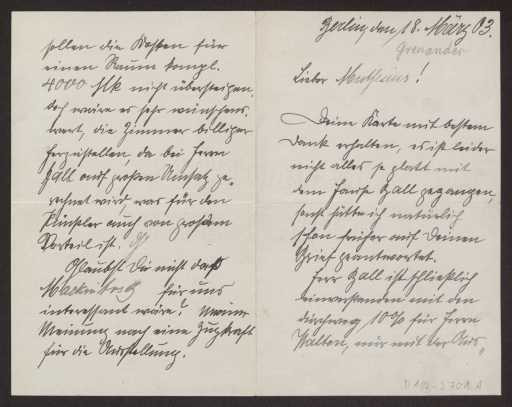 Berlin, den 18. März 03.
Grenander
Lieber Muthesius!
Deine Karte mit bestem
Dank erhalten, es ist leider
nicht alles so glatt mit
dem Hause Ball gegangen,
sonst hätte ich natürlich
schon früher auf Deinen
Brief geantwortet.
Herr Ball ist schließlich
einverstanden mit den
durchweg 10% für Herrn
nur mit der Aus„
sollen die Kosten für
einen Raum kompl.
4000 Mk nicht übersteigen.
doch wäre es sehr wünschens„
wert, die Zimmer billiger
herzustellen, da bei Herrn
Ball auf großen Umsatz ge„
rechnet wird, was für den
Künstler auch von großem
Vorteil ist.
Glaubst Du nicht daß
Mackintosh für uns
interessant wäre? Meiner
Meinung nach eine Zugkraft
für die Ausstellung.